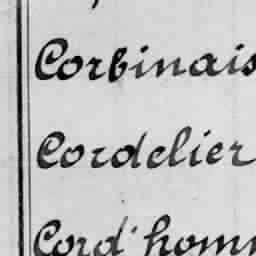 Corbinais
Cordelier
Cord'homm